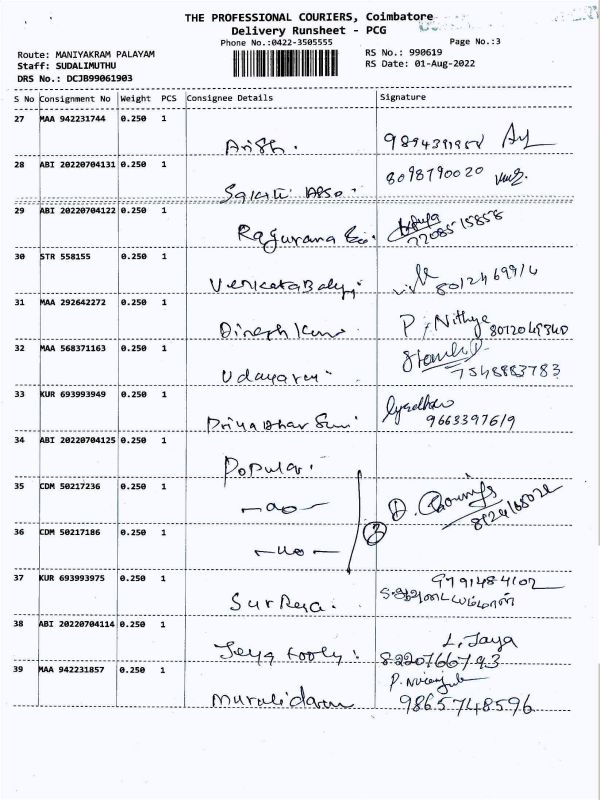 THE PROFESSIONAL COURIERS, Coimbatore
Delivery Runsheet - PCG
Phone No.:0422-3505555
Page No.:3
Route: MANIYAKRAM PALAYAM
RS No.: 990619
Staff: SUDALIMUTHU
RS Date: 01-Aug-2022
DRS No.: DCJB99061903
S No Consignment No Weight PCS Consignee Details Signature
27 MAA 942231744 0.250 1
28 ABI 20220704131 0.250 1
8098790020
29 ABI 20220704122 0.250 1
Raguvana
7708515858
30 STR 558155 0.250 1
Venkata Balaji
31 MAA 292642272 0.250 1
Dinesh Kumar P. Nithya
32 MAA 568371163 0.250 1
Udayaram 7548883783
33 KUR 693993949 0.250 1
9663397619
34 ABI 20220704125 0.250 1
Popular
35 CDM 50217236 0.250 1
-do-
36 CDM 50217186 0.250 1
-do-
37 KUR 693993975 0.250 1
9791484102
Surya.
38 ABI 20220704114 0.250 1
L. Jaya
Jeya 8220766793
39 MAA 942231857 0.250 1
Muralidaran 9865748596